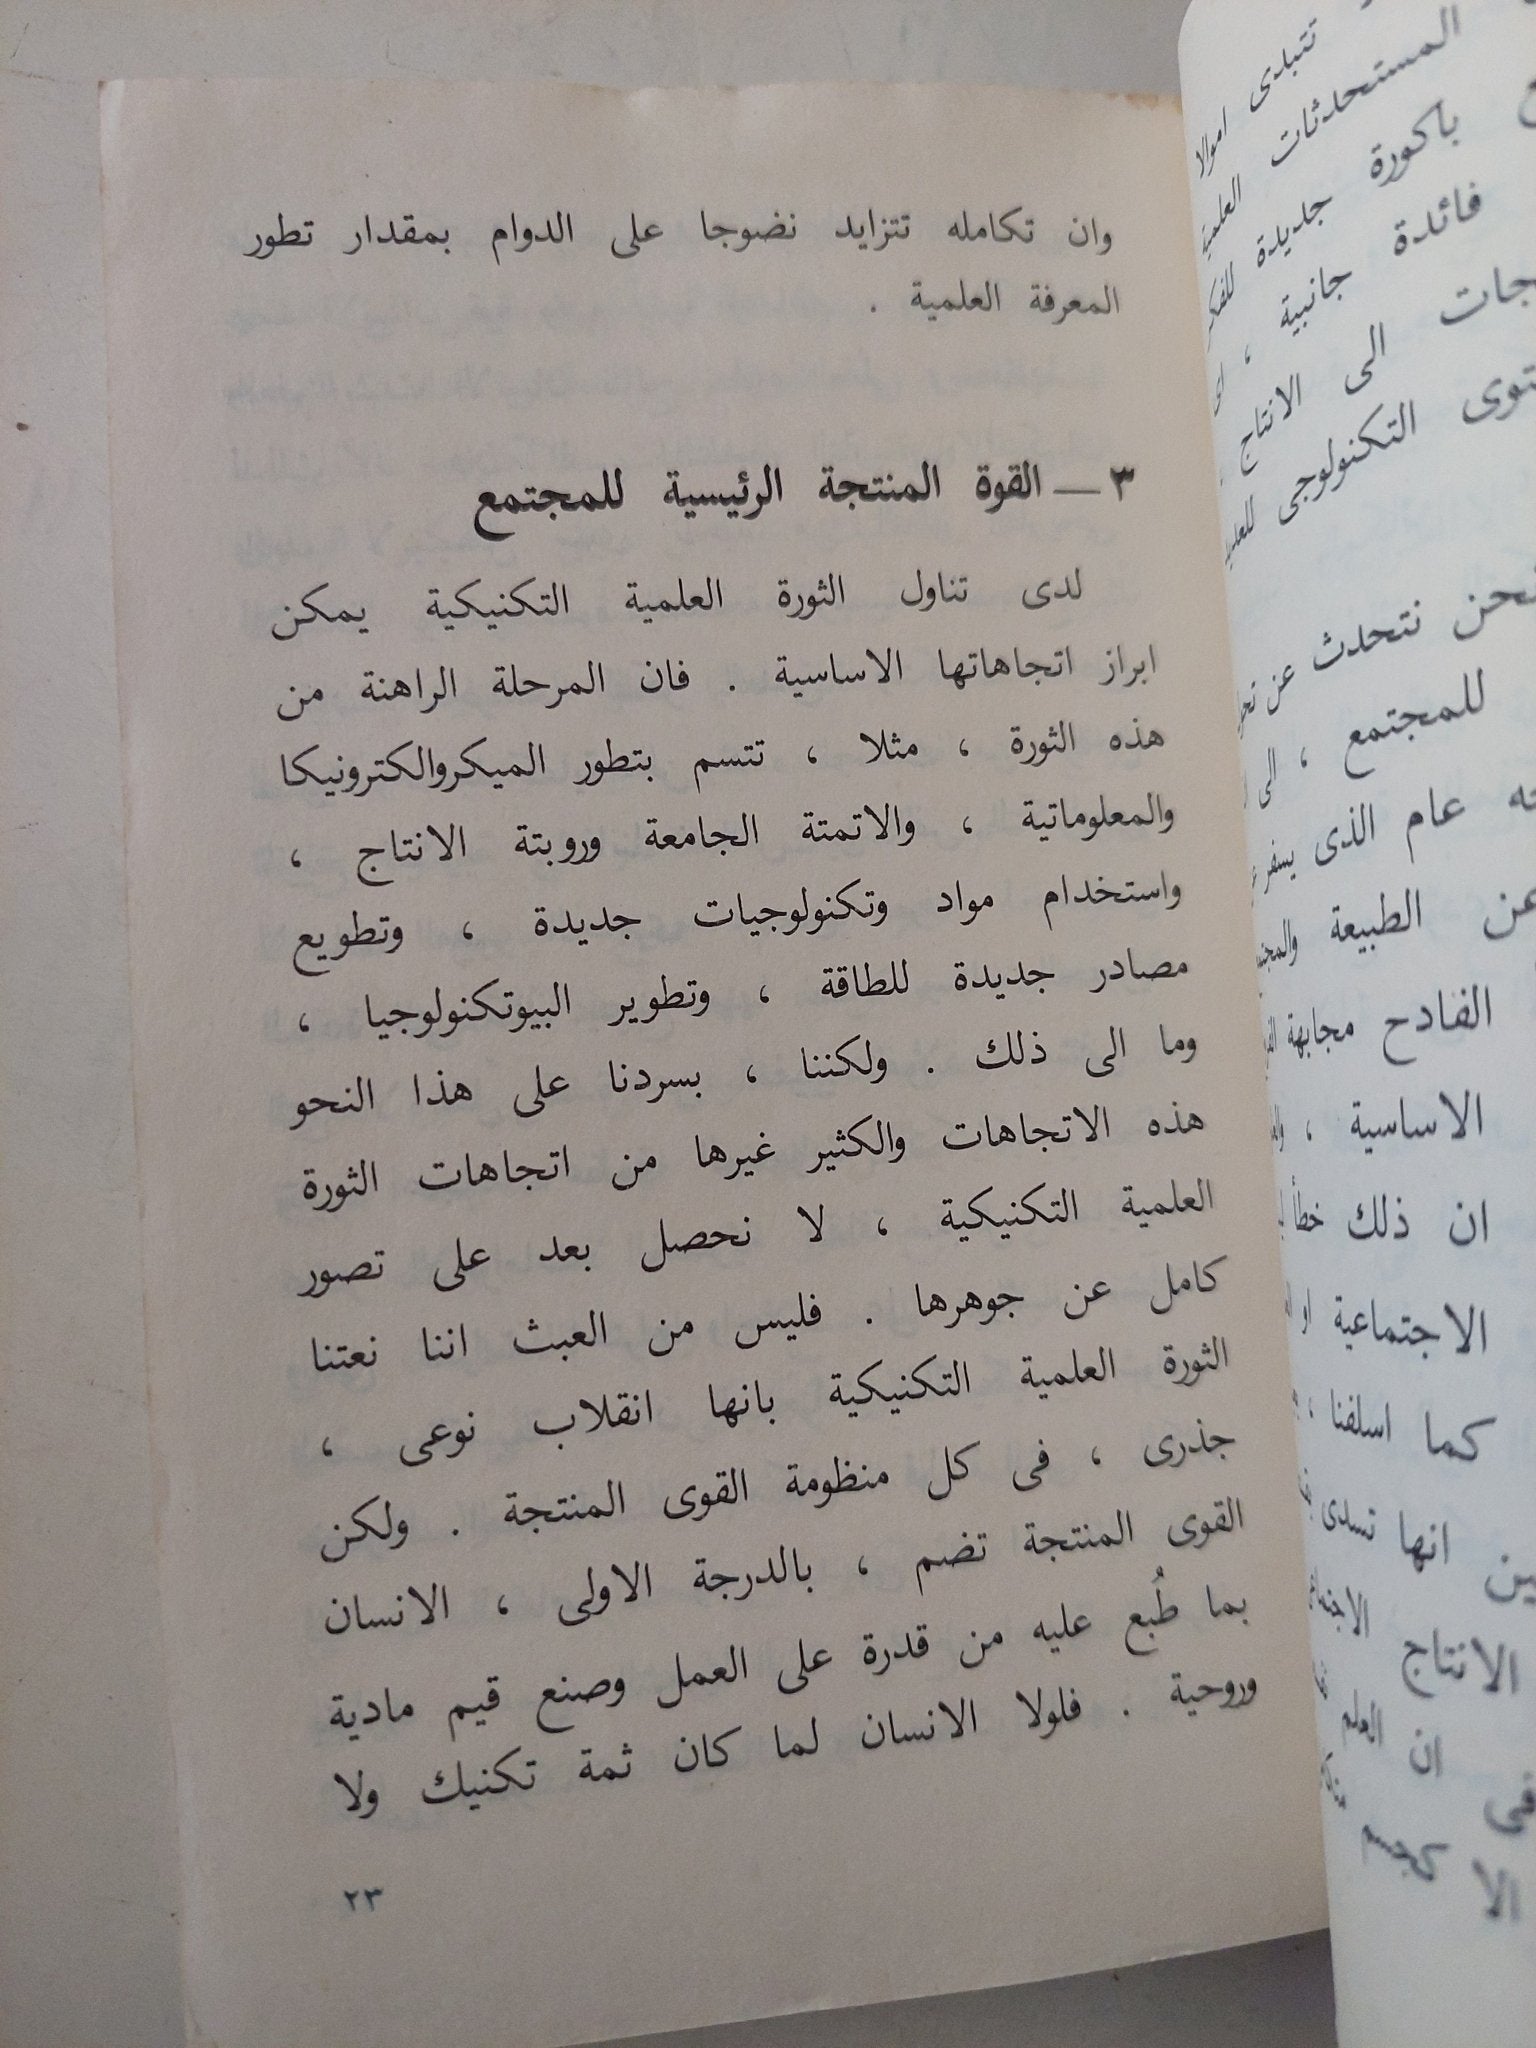 وان تكامله تتزايد نضوجا على الدوام بمقدار تطور
المعرفة العلمية .
٣ — القوة المنتجة الرئيسية للمجتمع
لدى تناول الثورة العلمية التكنيكية يمكن
ابراز اتجاهاتها الاساسية . فان المرحلة الراهنة من
هذه الثورة ، مثلا ، تتسم بتطور الميكروالكترونيكا
والمعلوماتية ، والاتمتة الجامعة وروبتة الانتاج ،
واستخدام مواد وتكنولوجيات جديدة ، وتطويع
مصادر جديدة للطاقة ، وتطوير البيوتكنولوجيا ،
وما الى ذلك . ولكننا ، بسردنا على هذا النحو
هذه الاتجاهات والكثير غيرها من اتجاهات الثورة
العلمية التكنيكية ، لا نحصل بعد على تصور
كامل عن جوهرها . فليس من العبث اننا نعتنا
الثورة العلمية التكنيكية بانها انقلاب نوعى ،
جذرى ، فى كل منظومة القوى المنتجة . ولكن
القوى المنتجة تضم ، بالدرجة الاولى ، الانسان
بما طُبع عليه من قدرة على العمل وصنع قيم مادية
وروحية . فلولا الانسان لما كان ثمة تكنيك ولا
٢٣
تتبدى اموالا
المستحدثات العلمية
باكورة جديدة
فائدة جانبية ،
الى الانتاج
التكنولوجى
نتحدث عن
للمجتمع ، الى
عام الذى يسفر
عن الطبيعة
الفادح مجابهة
الاساسية ،
ان ذلك خطأ
الاجتماعية او
كما اسلفنا ،
انها تسدى
الانتاج
ان العلم
فى